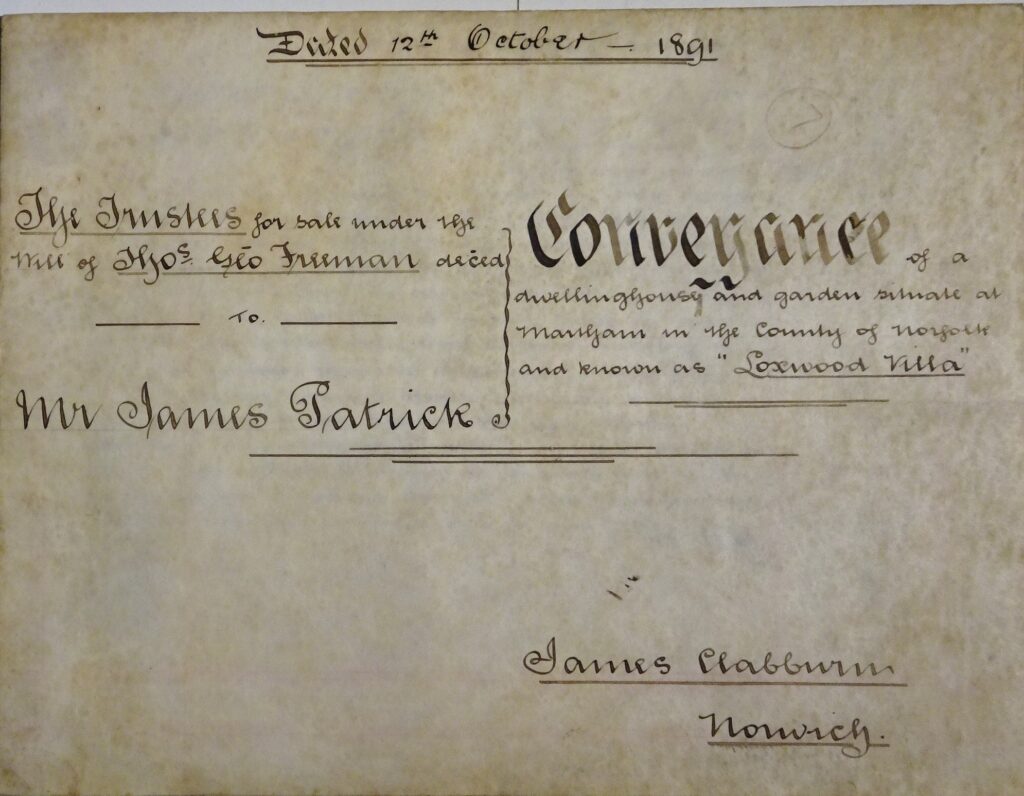 Dated 12th October — 1891
The Trustees for sale under the
Will of Thos. Geo Freeman deced
To.
Mr James Patrick
Conveyance of a
dwellinghouse and garden situate at
Martham in the County of Norfolk
and known as "Loxwood Villa"
James Clabburn
Norwich.